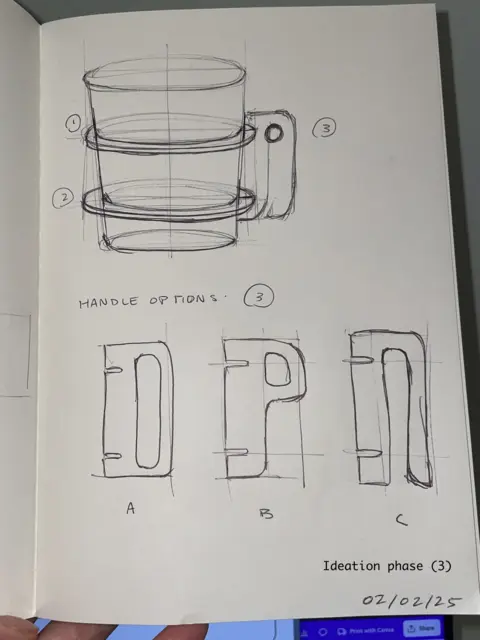 1
3
2
HANDLE OPTIONS. 3
A
B
C
Ideation phase (3)
02/02/25
Print with Canva
Share